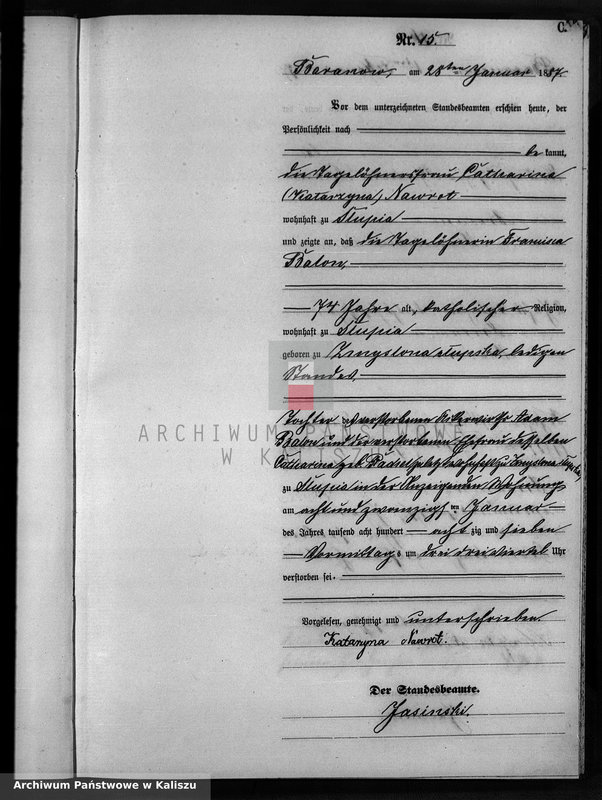 C.
Nr. 15.
Baranow, am 28ten Januar 1887.
Vor dem unterzeichneten Standesbeamten erschien heute, der
Persönlichkeit nach
be kannt,
die Tagelöhnersfrau Catharina
(Katarzyna) Nawrot
wohnhaft zu Slupia
und zeigte an, daß die Tagelöhnerin Francisca
Balon,
74 Jahre alt, katholischer Religion,
wohnhaft zu Slupia
geboren zu Zmyslona slupska, ledigen
Standes,
Tochter des verstorbenen Ackerwirths Adam
Balon und der verstorbenen Ehefrau desselben
Catharina geb. zuletzt wohnhaft zu Zmyslona slupska,
zu Slupia in der Anzeigenden Wohnung
am acht und zwanzigsten Januar
des Jahres tausend acht hundert acht zig und sieben
Vormittags um drei dreiviertel Uhr
verstorben sei.
Vorgelesen, genehmigt und unterschrieben.
Katarzyna Nawrot.
Der Standesbeamte.
Jasinski.
ARCHIWUM PAŃSTWOWE
W KALISZU
Archiwum Państwowe w Kaliszu